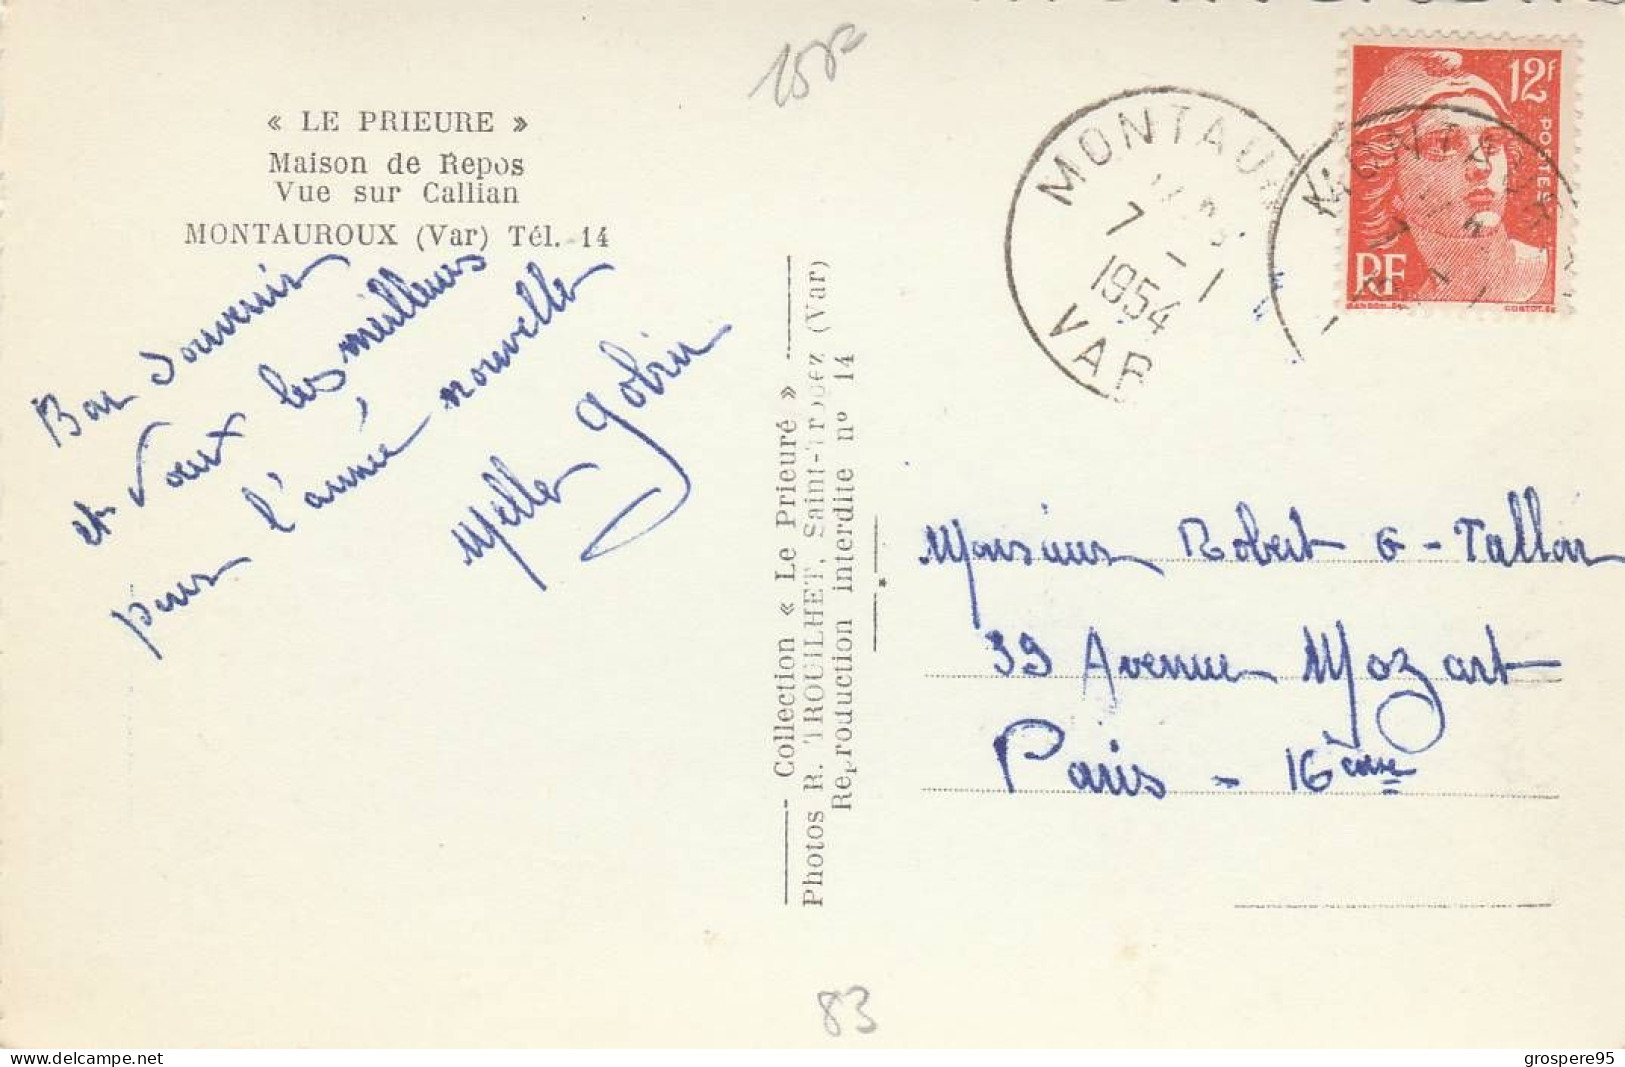 15F
« LE PRIEURE »
Maison de Repos
Vue sur Callian
MONTAUROUX (Var) Tél. 14
Bon Souvenir
et Voeux les meilleurs
pour l'année nouvelle
Gobin
Collection « Le Prieuré »
Photos R. TROUILHET, Saint-Tropez (Var)
Reproduction interdite nº 14
MONTAU
7 - 1
1954
VAR
12F
POSTES
RF
MONTAUR
7
Monsieur Robert G-Tallon
39 Avenue Mozart
Paris - 16ème
83
grospere95